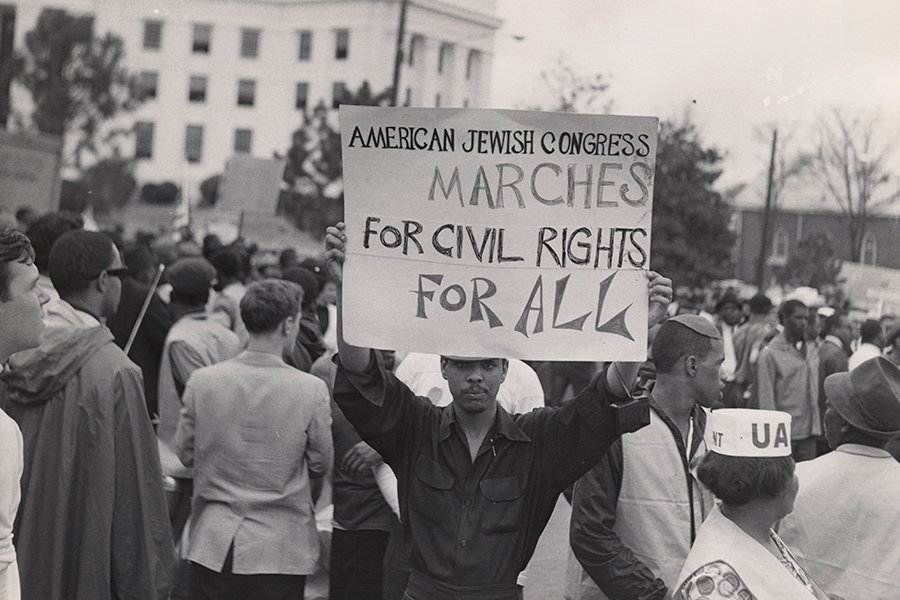 AMERICAN JEWISH CONGRESS
MARCHES
FOR CIVIL RIGHTS
FOR ALL
NT UA